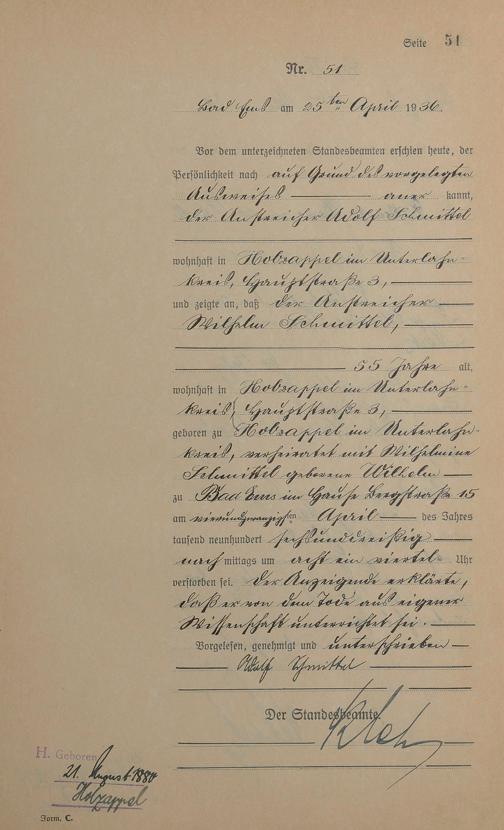 Seite 51
Nr. 51
Bad Ems am 25ten April 1936.
Vor dem unterzeichneten Standesbeamten erschien heute, der
Persönlichkeit nach auf Grund des vorgelegten
Ausweises aner kannt,
der Anstreicher Adolf Schmittel
wohnhaft in Holzappel im Unterlahn-
kreis, Hauptstraße 3,
und zeigte an, daß der Anstreicher
Wilhelm Schmittel,
55 Jahre alt,
wohnhaft in Holzappel im Unterlahn-
kreis, Hauptstraße 3,
geboren zu Holzappel im Unterlahn-
kreis, verheiratet mit Wilhelmine
Schmittel geborene Wilhelm
zu Bad Ems im Hause Bergstraße 15
am vierundzwanzigsten April des Jahres
tausend neunhundert sechsunddreißig
nach mittags um acht ein viertel Uhr
verstorben sei. Der Anzeigende erklärte,
daß er von dem Tode aus eigener
Wissenschaft unterrichtet sei.
Vorgelesen, genehmigt und unterschrieben
Adolf Schmittel
Der Standesbeamte.
H. Geboren
21. August 1880
Holzappel
Form. C.